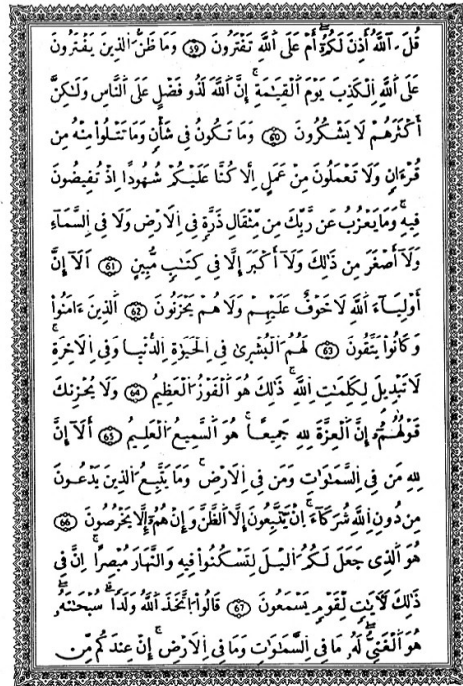 قُلَ ءَآللَّهُ أَذِنَ لَكُمُۥٓ أَمْ عَلَى اَ۬للَّهِ تَفْتَرُونَۖ 59 وَمَا ظَنُّ اُ۬لذِينَ يَفْتَرُونَ
عَلَى اَ۬للَّهِ اِ۬لْكَذِبَ يَوْمَ اَ۬لْقِيَٰمَةِۖ إِنَّ اَ۬للَّهَ لَذُو فَضْلٍ عَلَى اَ۬لنَّاسِ وَلَٰكِنَّ
أَكْثَرَهُمْ لَا يَشْكُرُونَۖ 60 وَمَا تَكُونُ فِى شَأْنٍ وَمَا تَتْلُواْ مِنْهُ مِن
قُرْءَانٍ وَلَا تَعْمَلُونَ مِنْ عَمَلٍ اِلَّا كُنَّا عَلَيْكُمْ شُهُودًا اِذْ تُفِيضُونَ
فِيهِۖ وَمَا يَعْزُبُ عَن رَّبِّكَ مِن مِّثْقَالِ ذَرَّةٍ فِى اِ۬لَارْضِ وَلَا فِى اِ۬لسَّمَآءِ
وَلَآ أَصْغَرَ مِن ذَٰلِكَ وَلَآ أَكْبَرَ إِلَّا فِى كِتَٰبٍ مُّبِينٍۖ 61 اَلَآ إِنَّ
أَوْلِيَآءَ اَ۬للَّهِ لَا خَوْفٌ عَلَيْهِمْ وَلَا هُمْ يَحْزَنُونَۖ 62 اَ۬لذِينَ ءَامَنُواْ
وَكَانُواْ يَتَّقُونَۖ 63 لَهُمُ اُ۬لْبُشْر۪ىٰ فِى اِ۬لْحَيَوٰةِ اِ۬لدُّنْيَا وَفِى اِ۬لَاخِرَةِۖ
لَا تَبْدِيلَ لِكَلِمَٰتِ اِ۬للَّهِۖ ذَٰلِكَ هُوَ اَ۬لْفَوْزُ اُ۬لْعَظِيمُۖ 64 وَلَا يُحْزِنكَ
قَوْلُهُمُۥٓ إِنَّ اَ۬لْعِزَّةَ لِلهِ جَمِيعاًۖ هُوَ اَ۬لسَّمِيعُ اُ۬لْعَلِيمُۖ 65 أَلَآ إِنَّ
لِلهِ مَن فِى اِ۬لسَّمَٰوَٰتِ وَمَن فِى اِ۬لَارْضِۖ وَمَا يَتَّبِعُ اُ۬لذِينَ يَدْعُونَ
مِن دُونِ اِ۬للَّهِ شُرَكَآءَۖ اِنْ يَّتَّبِعُونَ إِلَّا اَ۬لظَّنَّ وَإِنْ هُمُۥٓ إِلَّا يَخْرُصُونَۖ 66
هُوَ اَ۬لذِى جَعَلَ لَكُمُ اُ۬ليْلَ لِتَسْكُنُواْ فِيهِ وَالنَّهَارَ مُبْصِراًۖ اِنَّ فِى
ذَٰلِكَ لَأٓيَٰتٍ لِّقَوْمٍ يَسْمَعُونَۖ 67 قَالُواْ اُ۪تَّخَذَ اَ۬للَّهُ وَلَداًۖ سُبْحَٰنَهُۥ
هُوَ اَ۬لْغَنِىُّۖ لَهُۥ مَا فِى اِ۬لسَّمَٰوَٰتِ وَمَا فِى اِ۬لَارْضِۖ إِنْ عِندَكُم مِّن